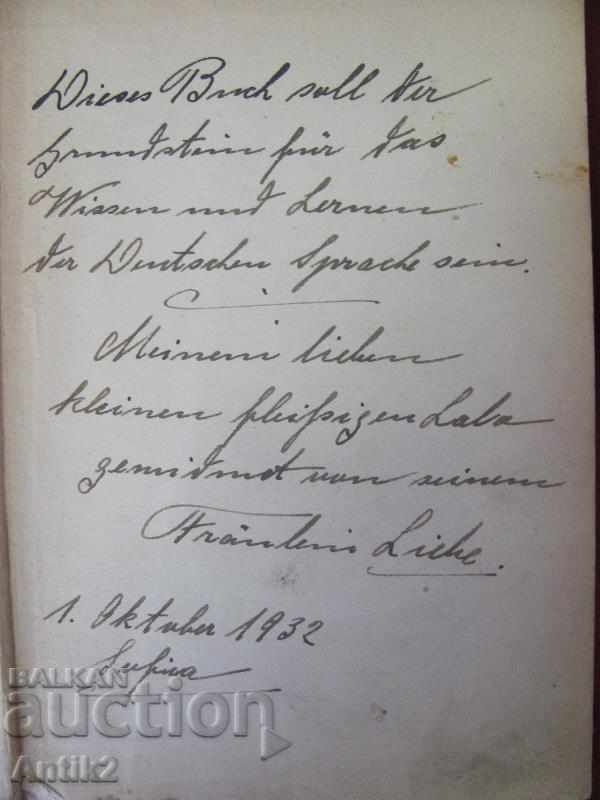 Dieses Buch soll der
Grundstein für das
Wissen und Lernen
der Deutschen Sprache sein.
Meinem lieben
kleinen fleißigen Lalo
gewidmet von seinem
Fräulein Liebe.
1. Oktober 1932
Sofia
BALKAN
auction
Antik2